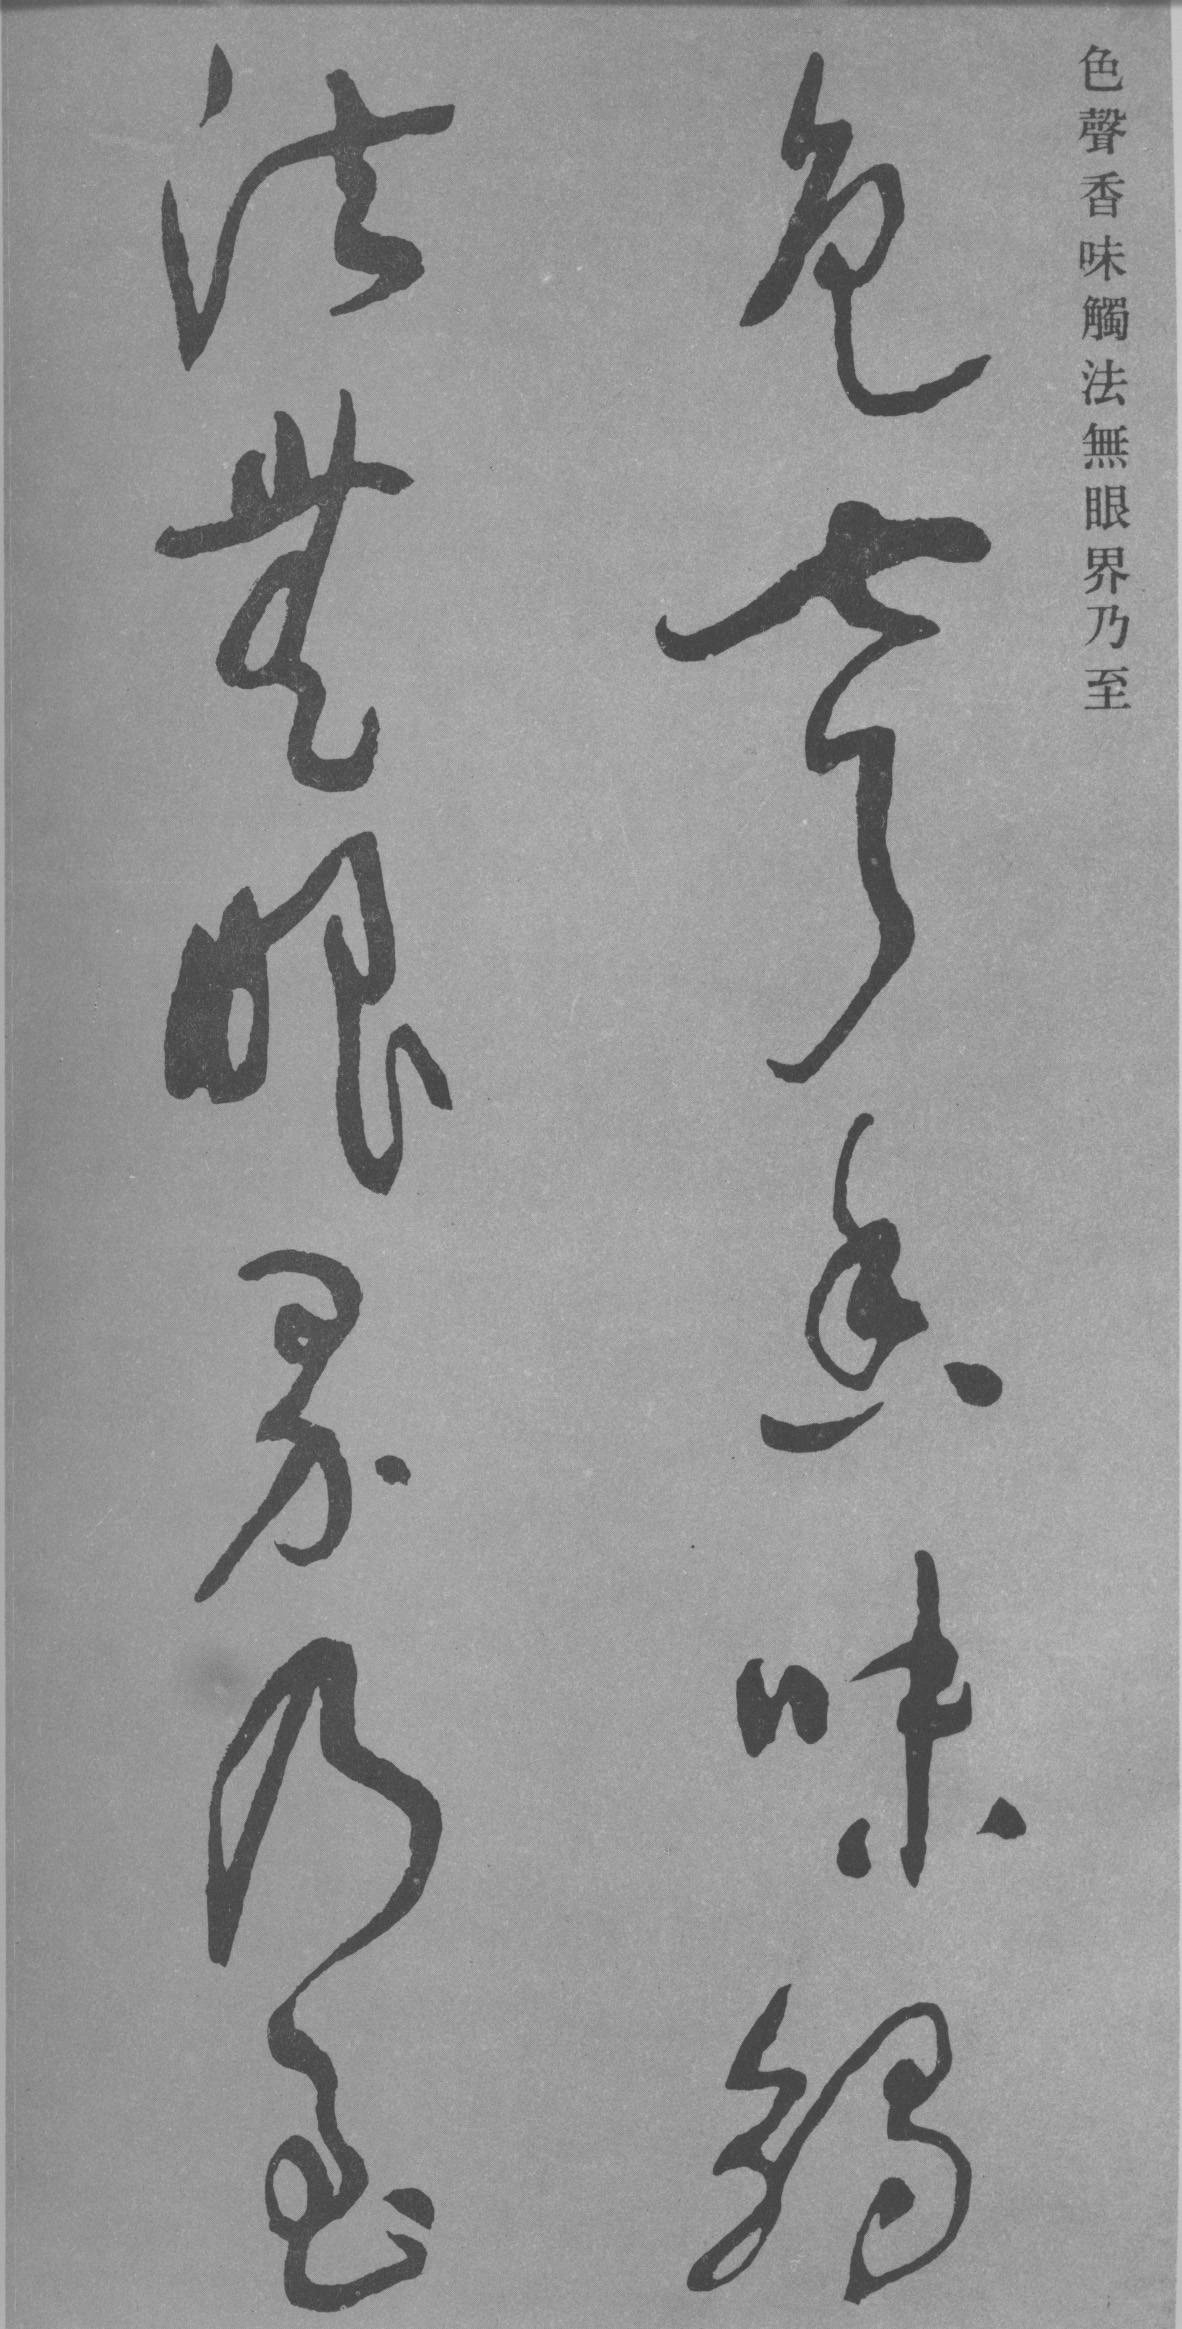 色聲香味觸法無眼界乃至
色聲香味觸
法無眼界乃至